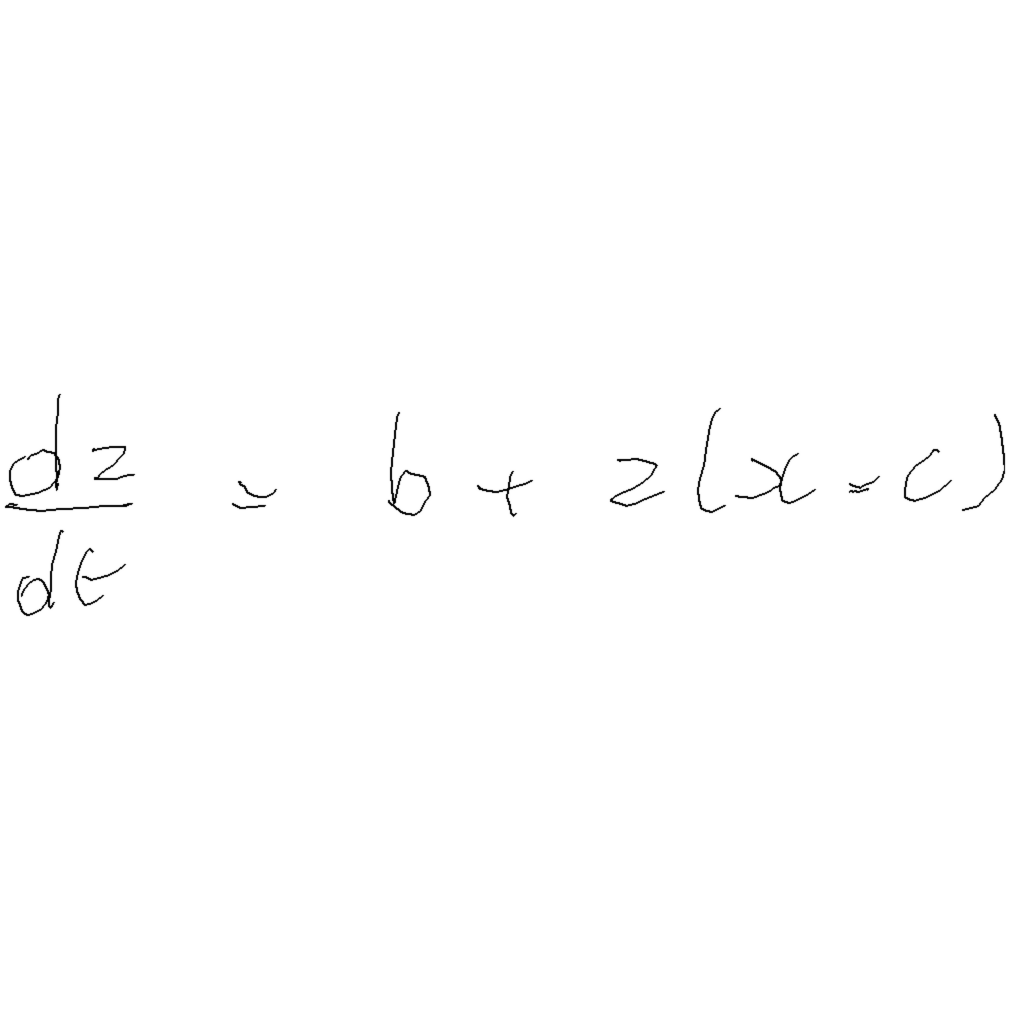 \frac{dz}{dt} = b + z(x - c)